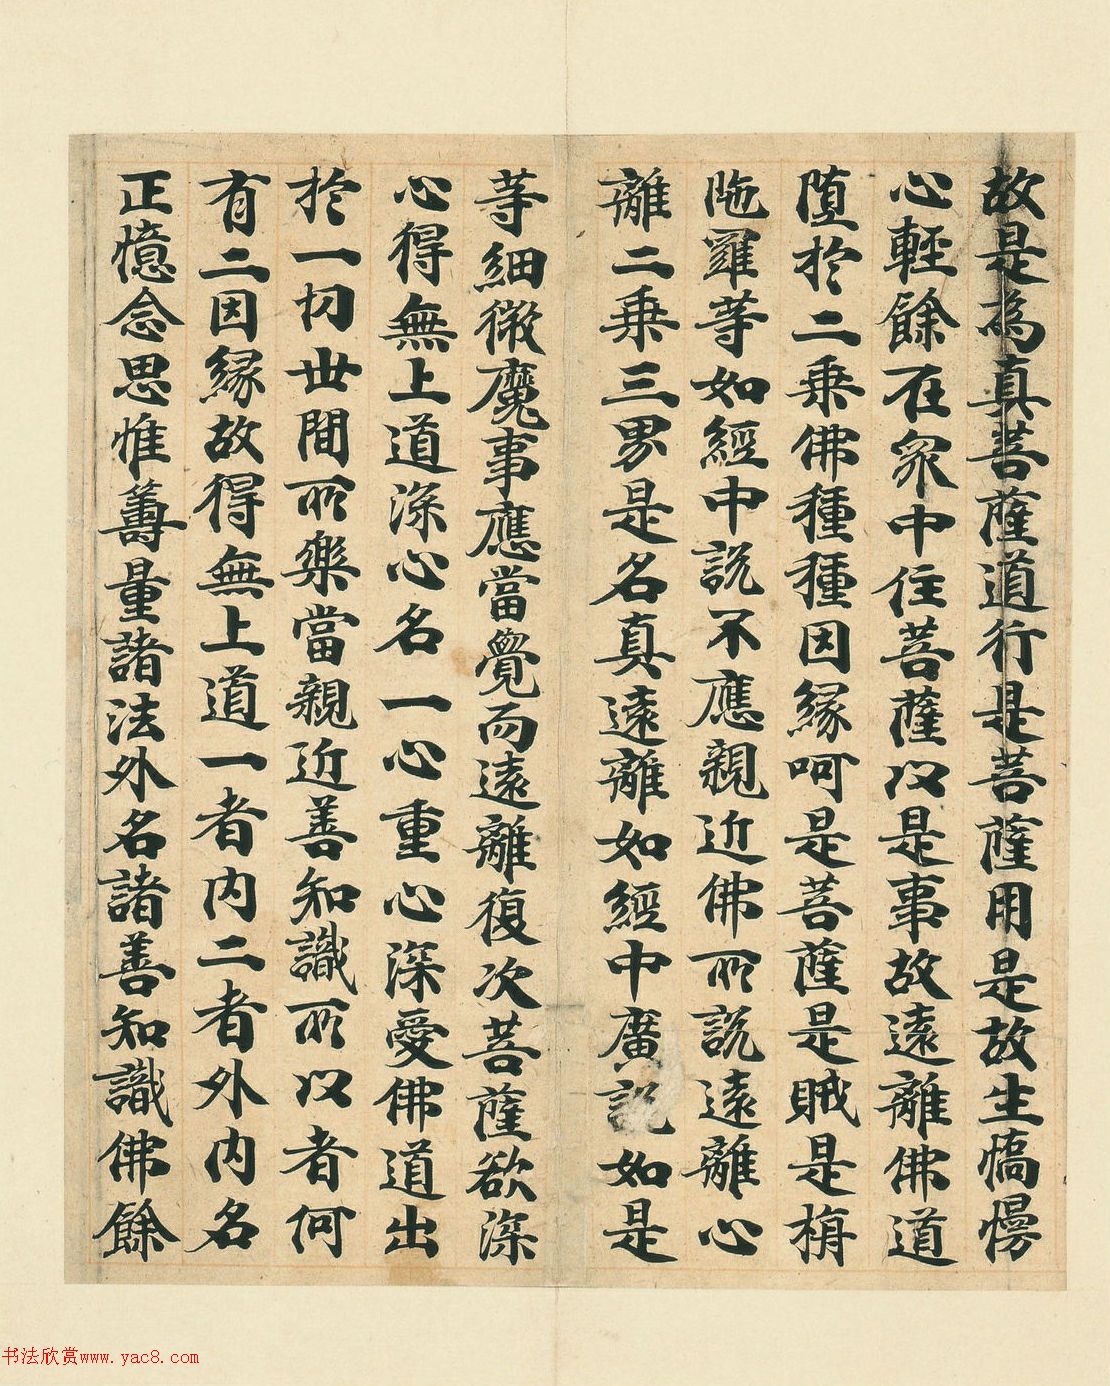 故是為真菩薩道行是菩薩用是故生憍慢
心輕餘在眾中住菩薩以是事故遠離佛道
墮於二乘佛種種因緣呵是菩薩是賊是栴
陁羅等如經中説不應親近佛所説遠離心
離二乘三界是名真遠離如經中廣説如是
等細微魔事應當覺而遠離復次菩薩欲深
心得無上道深心名一心重心深愛佛道出
於一切世間所樂當親近善知識所以者何
有二因緣故得無上道一者内二者外内名
正憶念思惟籌量諸法外名諸善知識佛餘
书法欣赏www.yac8.com